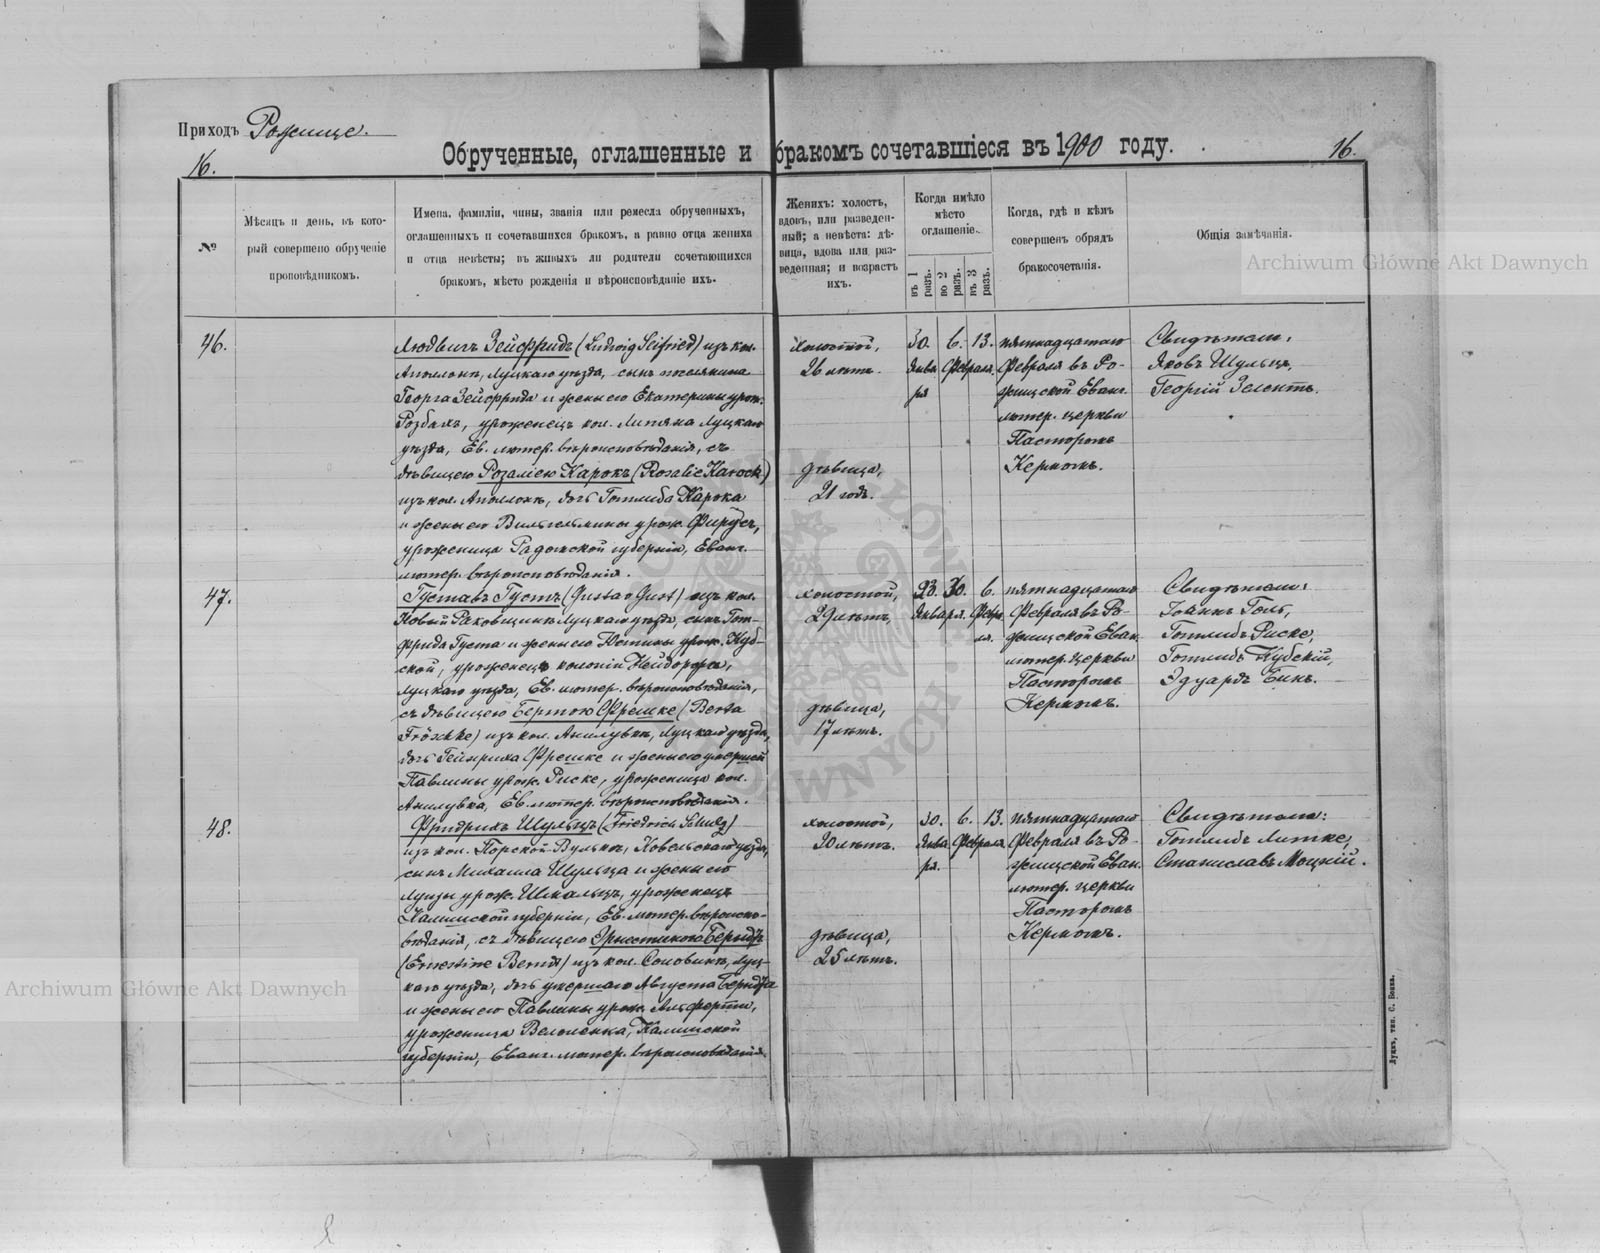 Приходъ Рожище.
16.
Обрученные, оглашенные и бракомъ сочетавшіеся въ 1900 году.
16.
№
Мѣсяцъ и день, въ кото-
рый совершено обрученіе
проповѣдникомъ.
Имена, фамиліи, чины, званія или ремесла обрученныхъ,
оглашенныхъ и сочетавшихся бракомъ, а равно отца жениха
и отца невѣсты; въ живыхъ ли родители сочетающихся
бракомъ, мѣсто рожденія и вѣроисповѣданіе ихъ.
Женихъ: холостъ,
вдовъ, или разведен-
ный; а невѣста: дѣ-
вица, вдова или раз-
веденная; и возрастъ
ихъ.
Когда имѣло
мѣсто
оглашеніе.
въ 1
разъ.
во 2
разъ.
въ 3
разъ.
Когда, гдѣ и кѣмъ
совершенъ обрядъ
бракосочетанія.
Общія замѣчанія.
46.
Людвигъ Зейфридъ (Ludwig Seifried) изъ кол.
Аполлонк, Луцкаго уѣзда, сынъ поселянина
Георга Зейфрида и жены его Екатерины урож.
уроженецъ кол. Луцкаго
уѣзда, Ев. лютер. вѣроисповѣданія, съ
дѣвицею Розаліею Карокъ (Rosalie Karock)
изъ кол. Аполлонк, дочь Готлиба Карока
и жены его Вильгельмины урож.
уроженица Радомской губерніи, Еванг.
лютер. вѣроисповѣданія.
холостой,
26 лѣтъ.
дѣвица,
21 годъ.
30. 6. 13.
Янва Февраля.
ря
пятнадцатаго
Февраля въ Ро-
жищской Еванг.
лютер. церкви
Пасторомъ
Кермомъ.
Свидѣтели:
Яковъ Шульцъ,
Георгій Зелентъ.
47.
Густавъ Густъ (Gustav Gust) изъ кол.
Новый Раковщинк Луцкаго уѣзда, сынъ Гот-
фрида Густа и жены его Юстины урож. Куб-
ской, уроженецъ колоніи Нейдорфъ,
Луцкаго уѣзда, Ев. лютер. вѣроисповѣданія,
съ дѣвицею Бертою Фрешке (Berta
Fröschke) изъ кол. Анилувк, Луцкаго уѣзда,
дочь Гейнриха Фрешке и жены его умершей
Павлины урож. Риске, уроженица кол.
Анилувка, Ев. лютер. вѣроисповѣданія.
холостой,
29 лѣтъ,
дѣвица,
17 лѣтъ.
23. 30. 6.
Января. Февра
ля.
пятнадцатаго
Февраля въ Ро-
жищской Еван.
лютер. церкви
Пасторомъ
Кермомъ.
Свидѣтели:
Іоганъ Голь,
Готлибъ Риске,
Готлибъ Кубскій,
Эдуардъ Бинъ.
48.
Фридрихъ Шульцъ (Friedrich Schulz)
изъ кол. Порской-Вульки, Ковельскаго уѣзда,
сынъ Михаила Шульца и жены его
Луизы урож. Шмальцъ, уроженецъ
Калишской губерніи, Ев. лютер. вѣроиспо-
вѣданія, съ дѣвицею Эрнестиною Берндтъ
(Ernestine Berndt) изъ кол. Соловинк, Луц-
каго уѣзда, дочь умершаго Августа Берндта
и жены его Павлины урож.
уроженица Калишской
губерніи, Еванг. лютер. вѣроисповѣданія.
холостой,
20 лѣтъ.
дѣвица,
25 лѣтъ.
30. 6. 13.
Янва Февраля.
ря.
пятнадцатаго
Февраля въ Ро-
жищской Еван.
лютер. церкви
Пасторомъ
Кермомъ.
Свидѣтели:
Готлибъ Литке,
Станиславъ Моцкій.
Луцкъ, тип. С. Бокка.
Archiwum Główne Akt Dawnych
Archiwum Główne Akt Dawnych